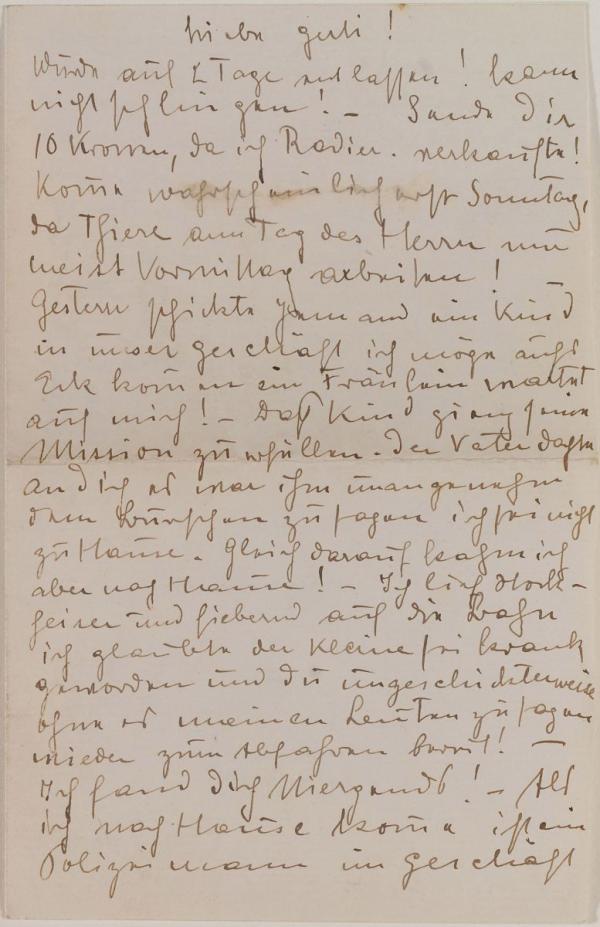 Liebe Gusti!
Wurde auf 2 Tage entlassen! kann
nicht schlingen! – Sende Dir
10 Kronen, da ich Radier. verkaufte!
Kom̄e wahrscheinlich erst Sonntag,
da Thiere am Tag des Herrn nur
meist Vormittag arbeiten!
Gestern schickte Jemand ein Kind
in unser Geschäft ich möge aufs
Eck kom̄en ein Fräulein wartet
auf mich! – Daß Kind gieng seine
Mission zu erfüllen. Der Vater dachte
an dich es war ihm unangenehm
dem Burschen zu sagen ich sei nicht
zu Hause. Gleich darauf kahm ich
aber nach Hause! – Ich lief stock-
heiser und fiebernd auf die Bahn
ich glaubte der Kleine sei krank
geworden und du ungeschickterweise
ohne es meinen Leuten zu sagen
wieder zum Abfahren bereit! –
Ich fand dich Niergends! – Als
ich nach Hause kom̄e ist ein
Polizeimann im Geschäft